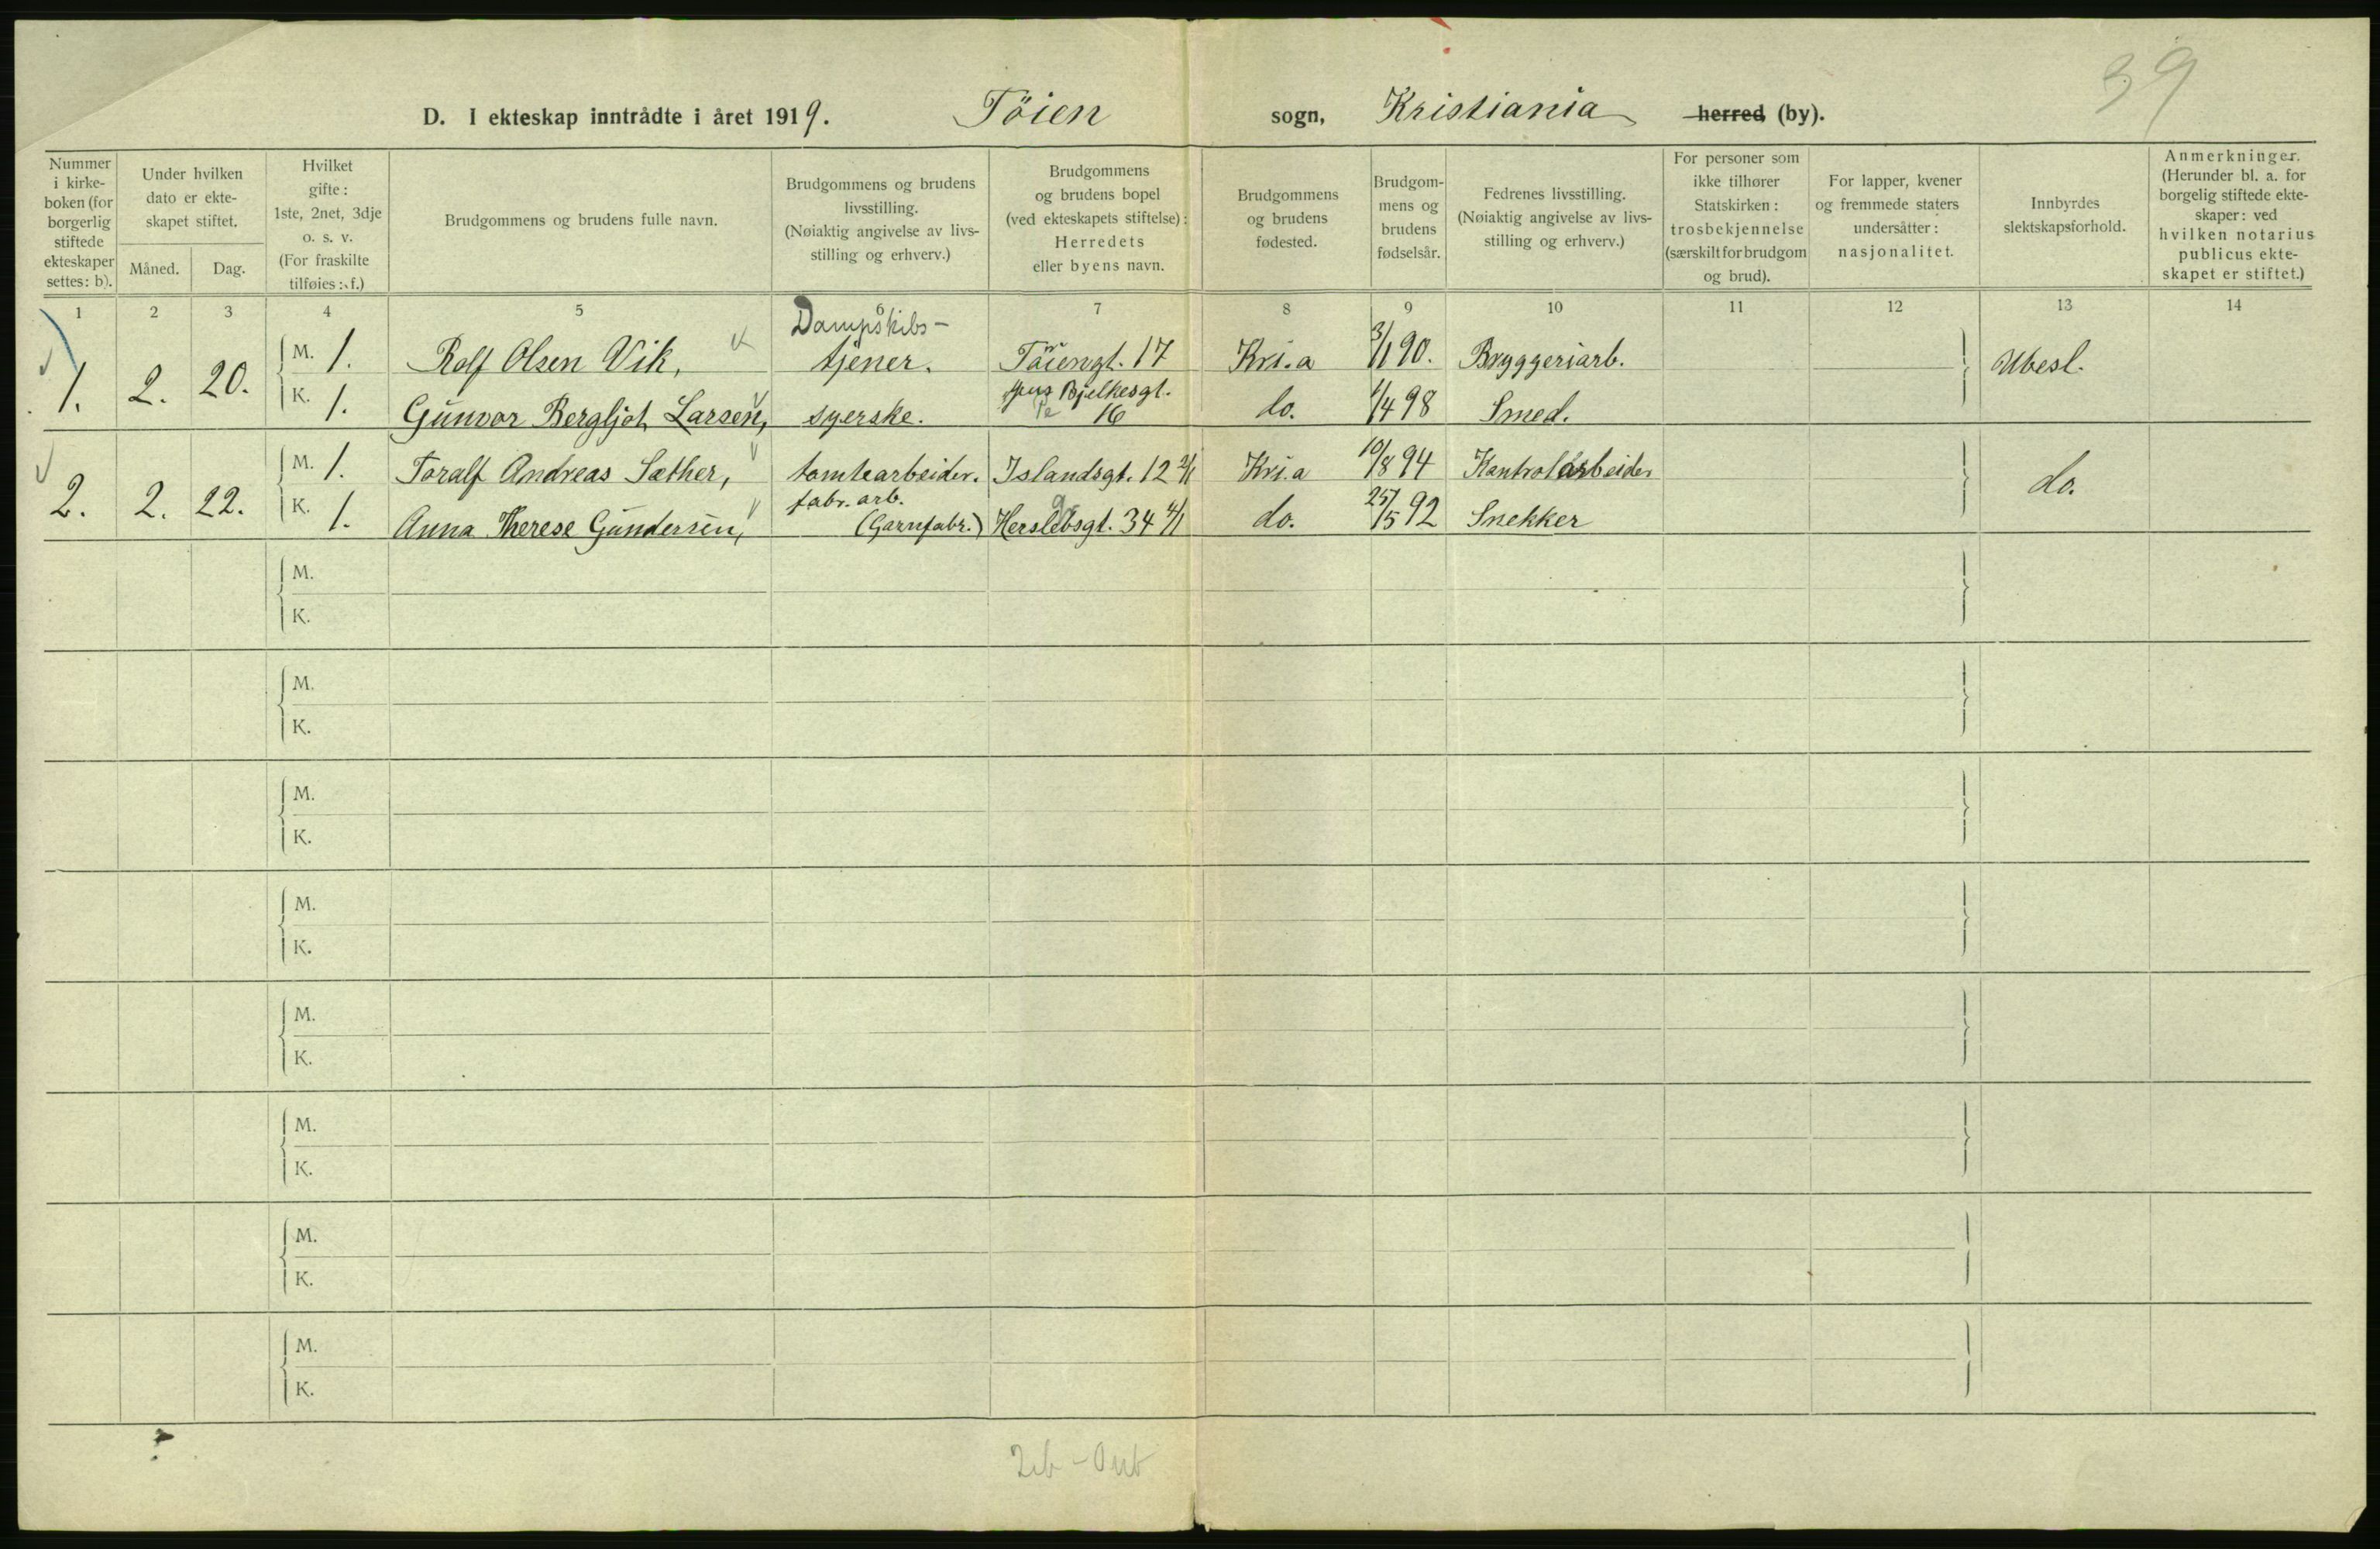 39
D. I ekteskap inntrådte i året 1919. Töien sogn, Kristiania herred (by).
Nummer i kirke-boken (for borgerlig stiftede ekteskaper settes: b).
Under hvilken dato er ekte-skapet stiftet.
Måned. Dag.
Hvilket gifte: 1ste, 2net, 3dje o. s. v. (For fraskilte tilføies: f.)
Brudgommens og brudens fulle navn.
Brudgommens og brudens livsstilling. (Nøiaktig angivelse av livs-stilling og erhverv.)
Brudgommens og brudens bopel (ved ekteskapets stiftelse): Herredets eller byens navn.
Brudgommens og brudens fødested.
Brudgom-mens og brudens fødselsår.
Fedrenes livsstilling. (Nøiaktig angivelse av livs-stilling og erhverv.)
For personer som ikke tilhører Statskirken: trosbekjennelse (særskilt for brudgom og brud).
For lapper, kvener og fremmede staters undersåtter: nasjonalitet.
Innbyrdes slektskapsforhold.
Anmerkninger. (Herunder bl. a. for borgelig stiftede ekte-skaper: ved hvilken notarius publicus ekte-skapet er stiftet.)
1 2 3 4 5 6 7 8 9 10 11 12 13 14
1. 2. 20. M. 1. Rolf Olsen Vik, Dampskibs-tjener. Töiengt. 17 Kri.a 3/1 90. Bryggeriarb. Ubesl.
K. 1. Gunvor Bergljot Larsen, syerske. Jens Bjelkesgt. 16 do. 1/4 98 Smed.
2. 2. 22. M. 1. Toralf Andreas Sæther, tomtearbeider. Islandsgt. 12 2/1 Kri.a 10/8 94 Kontrolarbeider do.
K. 1. Anna Therese Gundersen, fabr. arb. (Garnfabr.) Herslebsgt. 34 4/1 do. 25/5 92 Snekker
M.
K.
M.
K.
M.
K.
M.
K.
M.
K.
M.
K.
M.
K.
M.
K.